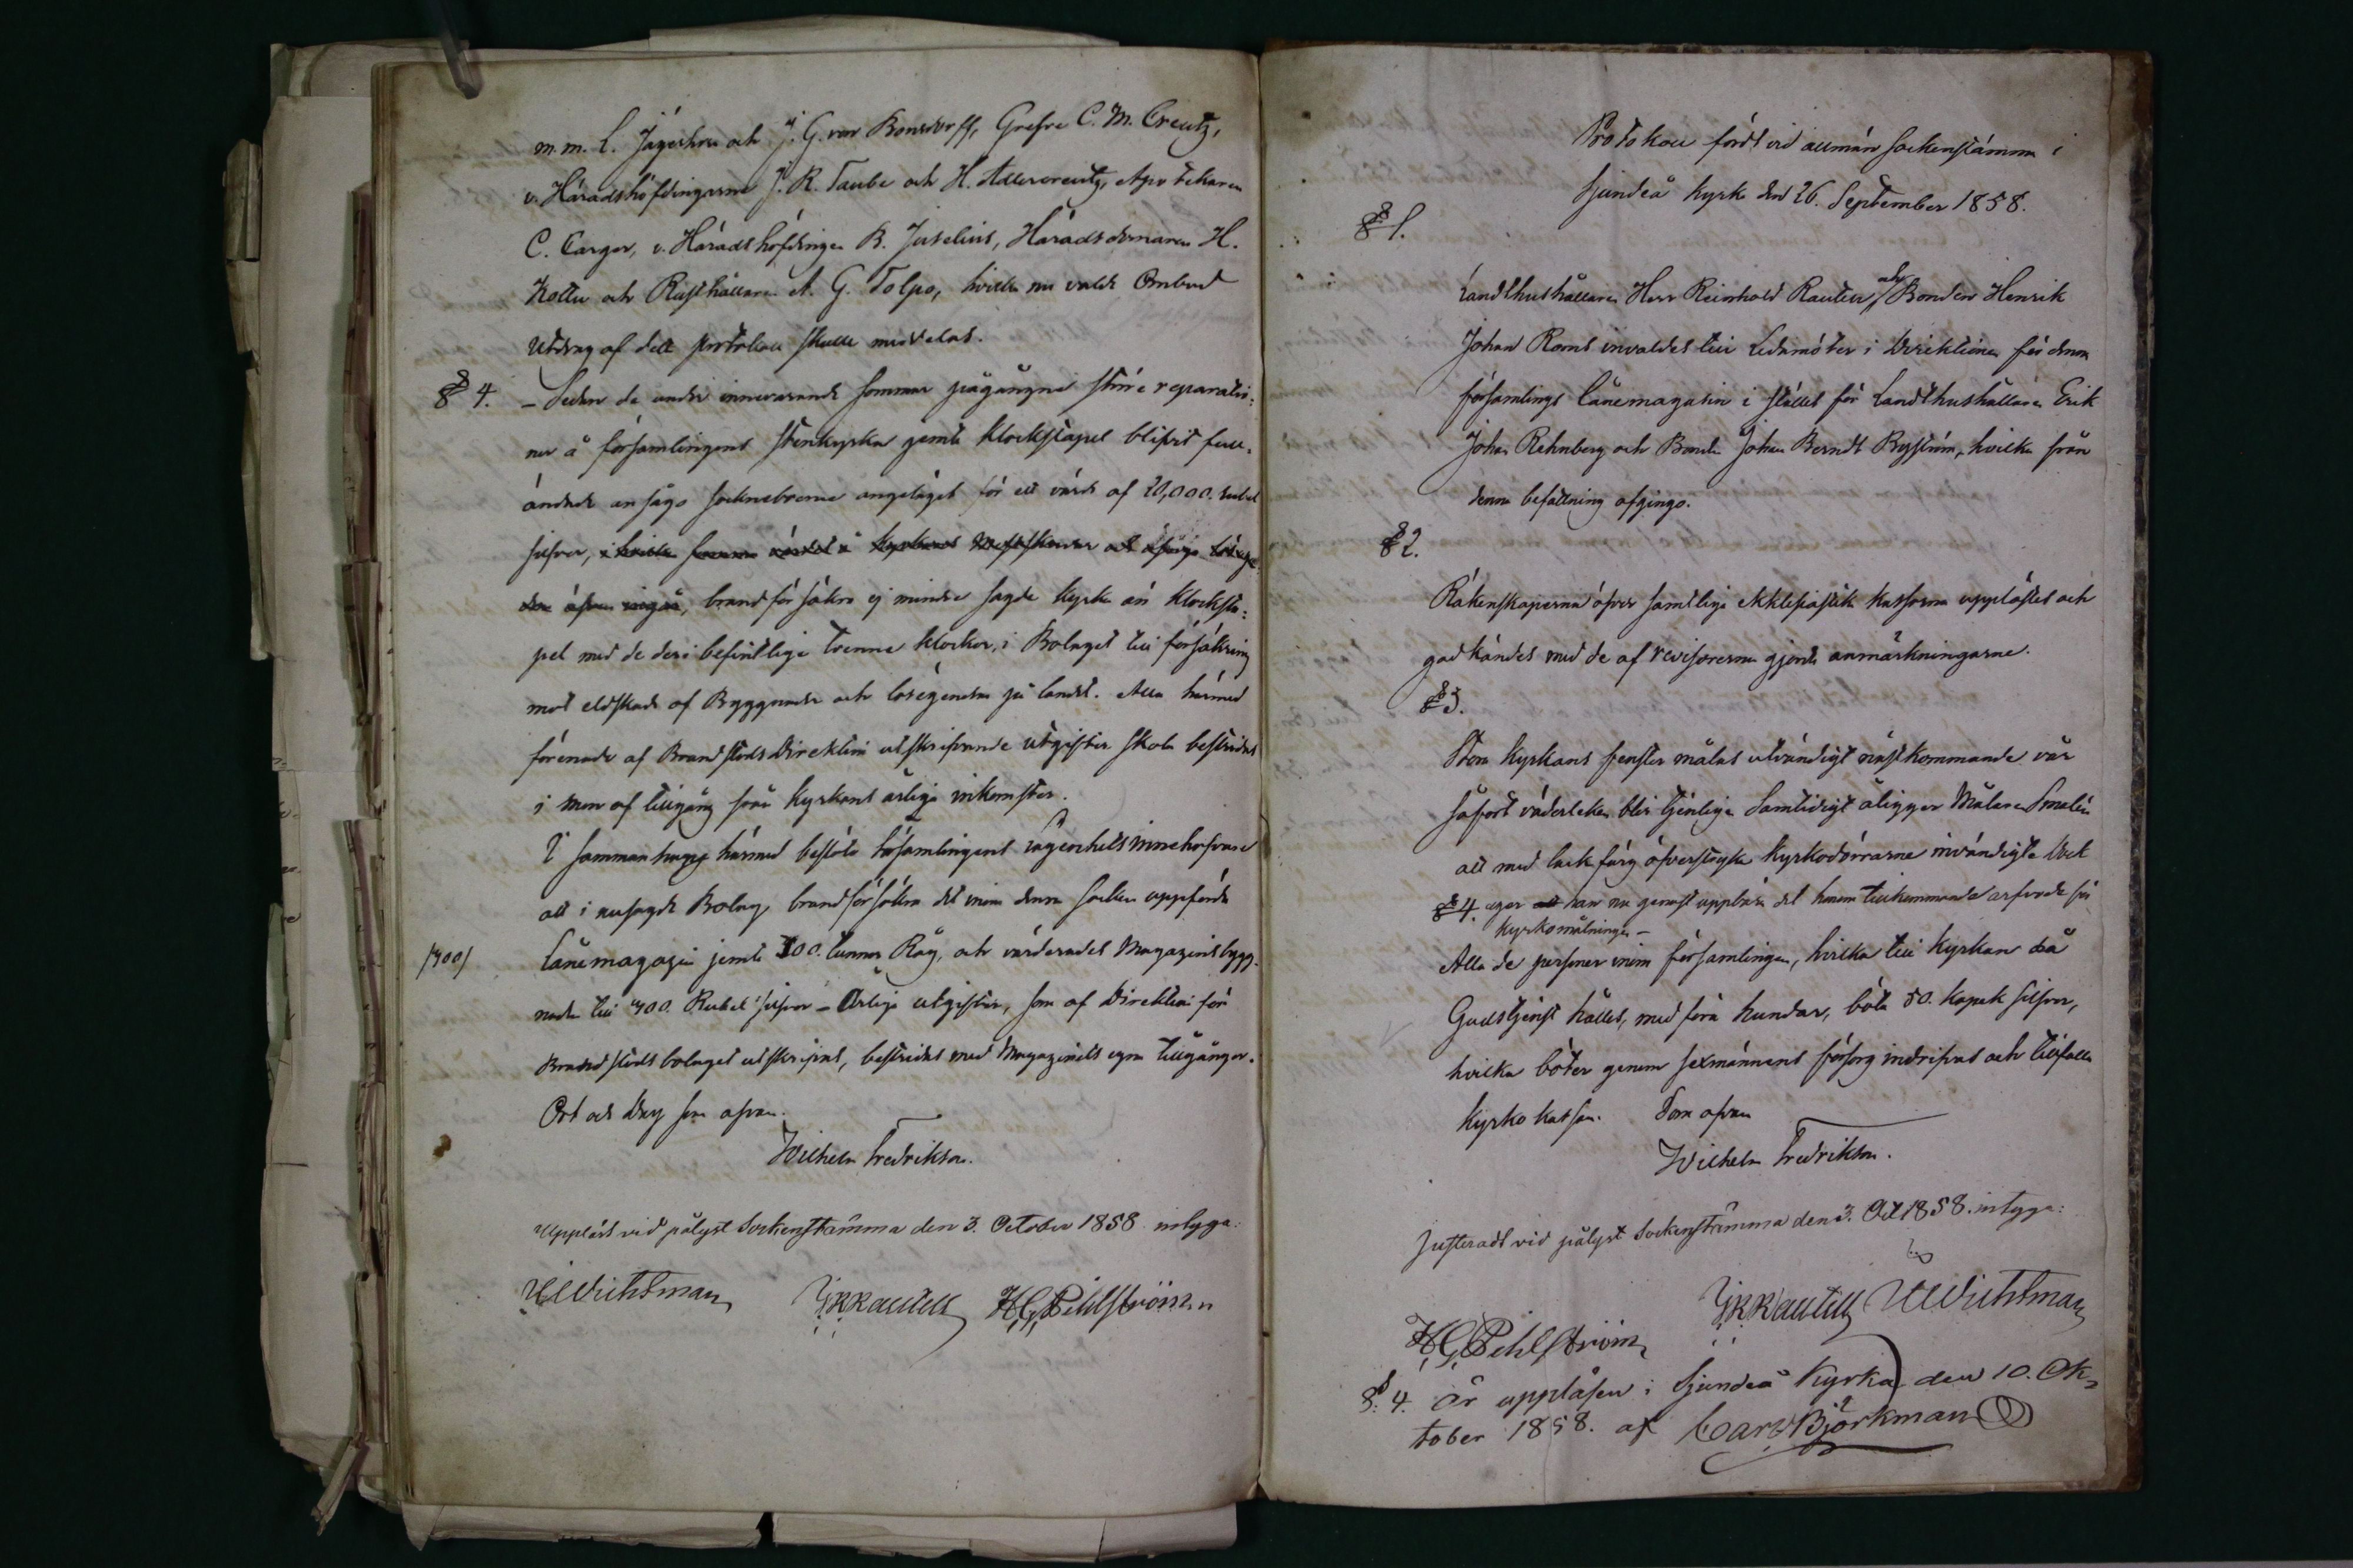 m.m. L. Jägerhorn och J. G. von Bonsdorff, Grefve C. M. Creutz,
v. Häradshöfdingarne J. R. Taube och H. Adlercreutz, Apotekaren
C. Carger, v. Häradshöfdingen B. Juselius, Häradsdomaren H.
Kottu och Rusthållaren A. G. Tolpo, hvilka nu valde Ombud
Utdrag af dett protokoll skulle meddelas.
§ 4. – Sedan de under innevarande sommar pågångne större reparatio-
ner å församlingens stenkyrka jemte klockstapel blifvit full-
ändade ansågo sockneboerne angeläget för ett värde af 20,000. rubel
silfver, i hvilka summa värdet å kyrkans och öfriga lösege-
dom äfven ingår, brandförsäkra ej mindre sagde kyrka än klocksta-
pel med de deri befintlige trenne klockor, i Bolaget till försäkring
mot eldskada af Byggnader och lösegendom på landet. Alla härmed
förenade af BrandstodsDirektion utskrifvande utgifter skola bestridas
i mon af tillgång från kyrkans årliga inkomster.
I sammanhang härmed beslöto församlingens lägenhetsinnehafvare
att i nusagde Bolag brandförsäkra det inom denna socken uppförda
/300/ Lånemagazin jemte 300. tunnor Råg, och värderades Magazinsbygg-
naden till 400. Rubel silfver – Årliga utgifter, som af Direktion för
Brandstodsbolaget utskrifvas, bestridas med Magazinets egna tillgångar.
Ort och Dag som ofvan.
Wilhelm Fredrikson.
Uppläst vid pålyst Sockenstämma den 3. October 1858 intyga:
G R Rautell H G Pehlström
Protokoll fördt vid allmän sockenstämma i
Sjundeå kyrka den 26. September 1858.
§ 1.
Landthushållaren Herr Reinhold Rautell och Bonden Henrik
Johan Roms invaldes till Ledamöter i Direktionen för denna
församlings Lånemagasin i stället för Landthushållaren Erik
Johan Rehnberg och Bonden Johan Berndt Byström, hvilka från
denna befattning afgingo.
§ 2.
Räkenskaperna öfver samtliga ekklesiastik kassorna upplästes och
godkändes med de af revisorerna gjorda anmärkningarne.
§ 3.
Stora kyrkans fenster målas utvändigt nästkommande vår
såfort väderleken blir tjenlig. Samtidigt åligger Målaren Smalén
att med lackfärg öfverstryka kyrkodörrarne invändigt. Dock
eger att han nu genast uppbära det honom tillkommande arfvode för
kyrkomålningen –
§ 4.
Alla de personer inom församlingen, hvilka till kyrkan då
Gudstjenst hålles, medföra hundar, böta 50. kopek silfver,
hvilka böter genom sexmännens försorg indrifvas och tillfalla
kyrko kassan. Som ofvan
Wilhelm Fredrikson.
Justeradt vid pålyst Sockenstämma den 3. Oct 1858. intyga:
G R Rautell
H G Pehlström
§. 4. är uppläsen i Sjundeå Kyrka den 10. Ok-
tober 1858. af Carl Björkman